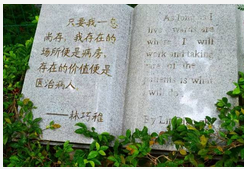 只要我一息
尚存,我存在的
场所便是病房,
存在的价值便是
医治病人
——林巧稚
As long as I
live, wards are
where I will
work and taking
care of the
patients is what
I will do.
By Lin